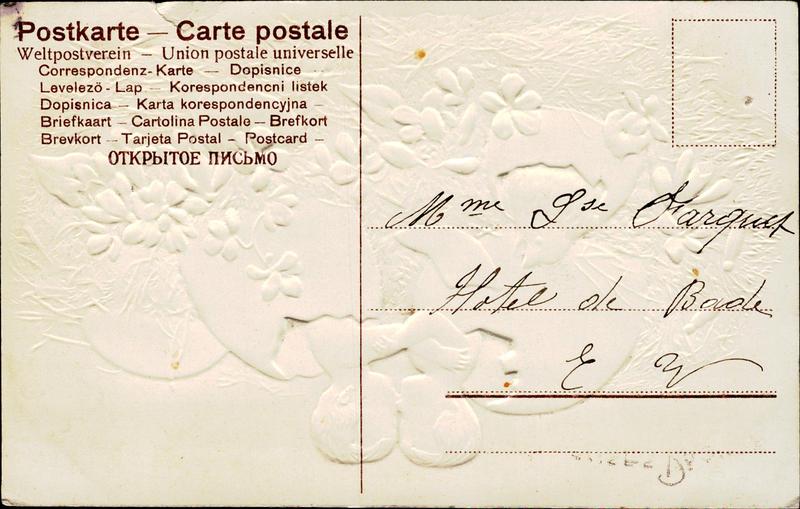 Postkarte — Carte postale
Weltpostverein — Union postale universelle
Correspondenz-Karte — Dopisnice
Levelező-Lap — Korespondencni listek
Dopisnica — Karta korespondencyjna –
Briefkaart – Cartolina Postale – Brefkort
Brevkort – Tarjeta Postal – Postcard –
ОТКРЫТОЕ ПИСЬМО
Mme Lse Farquet
Hotel de Bade
E V